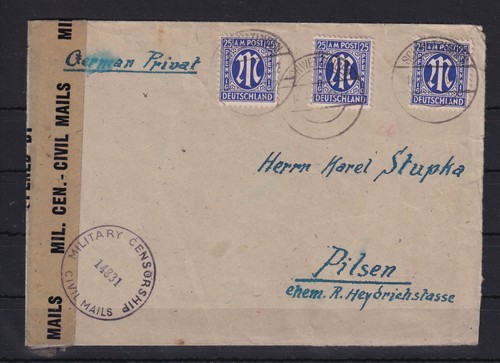 German Privat
25 AM POST 25
PFENNIG
DEUTSCHLAND
25 AM POST 25
PFENNIG
DEUTSCHLAND
25 AM POST 25
DEUTSCHLAND
Herrn Karel Stupka
Pilsen
ehem. R. Heydrichstasse
MILITARY CENSORSHIP
14831
CIVIL MAILS
OPENED BY
MIL. CEN.- CIVIL MAILS
MAILS